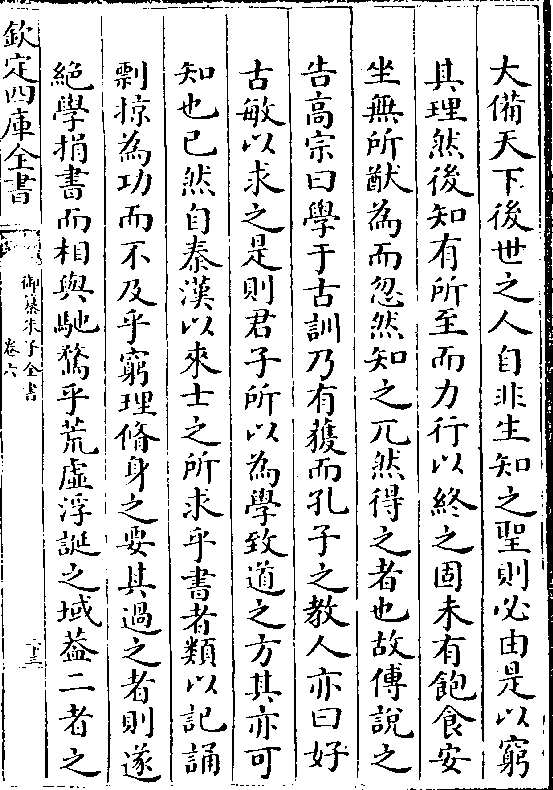 大備天下後世之人自非生知之聖則必由是以窮
其理然後知有所至而力行以終之固未有飽食安
坐無所猷為而忽然知之兀然得之者也故傅說之
告高宗曰學于古訓乃有獲而孔子之教人亦曰好
古敏以求之是則君子所以為學致道之方其亦可
知也已然自秦漢以來士之所求乎書者類以記誦
剽掠為功而不及乎窮理脩身之要其過之者則遂
絕學捐書而相與馳騖乎荒虛浮誕之域葢二者之
欽定四庫全書
御纂朱子全書
卷六
十三